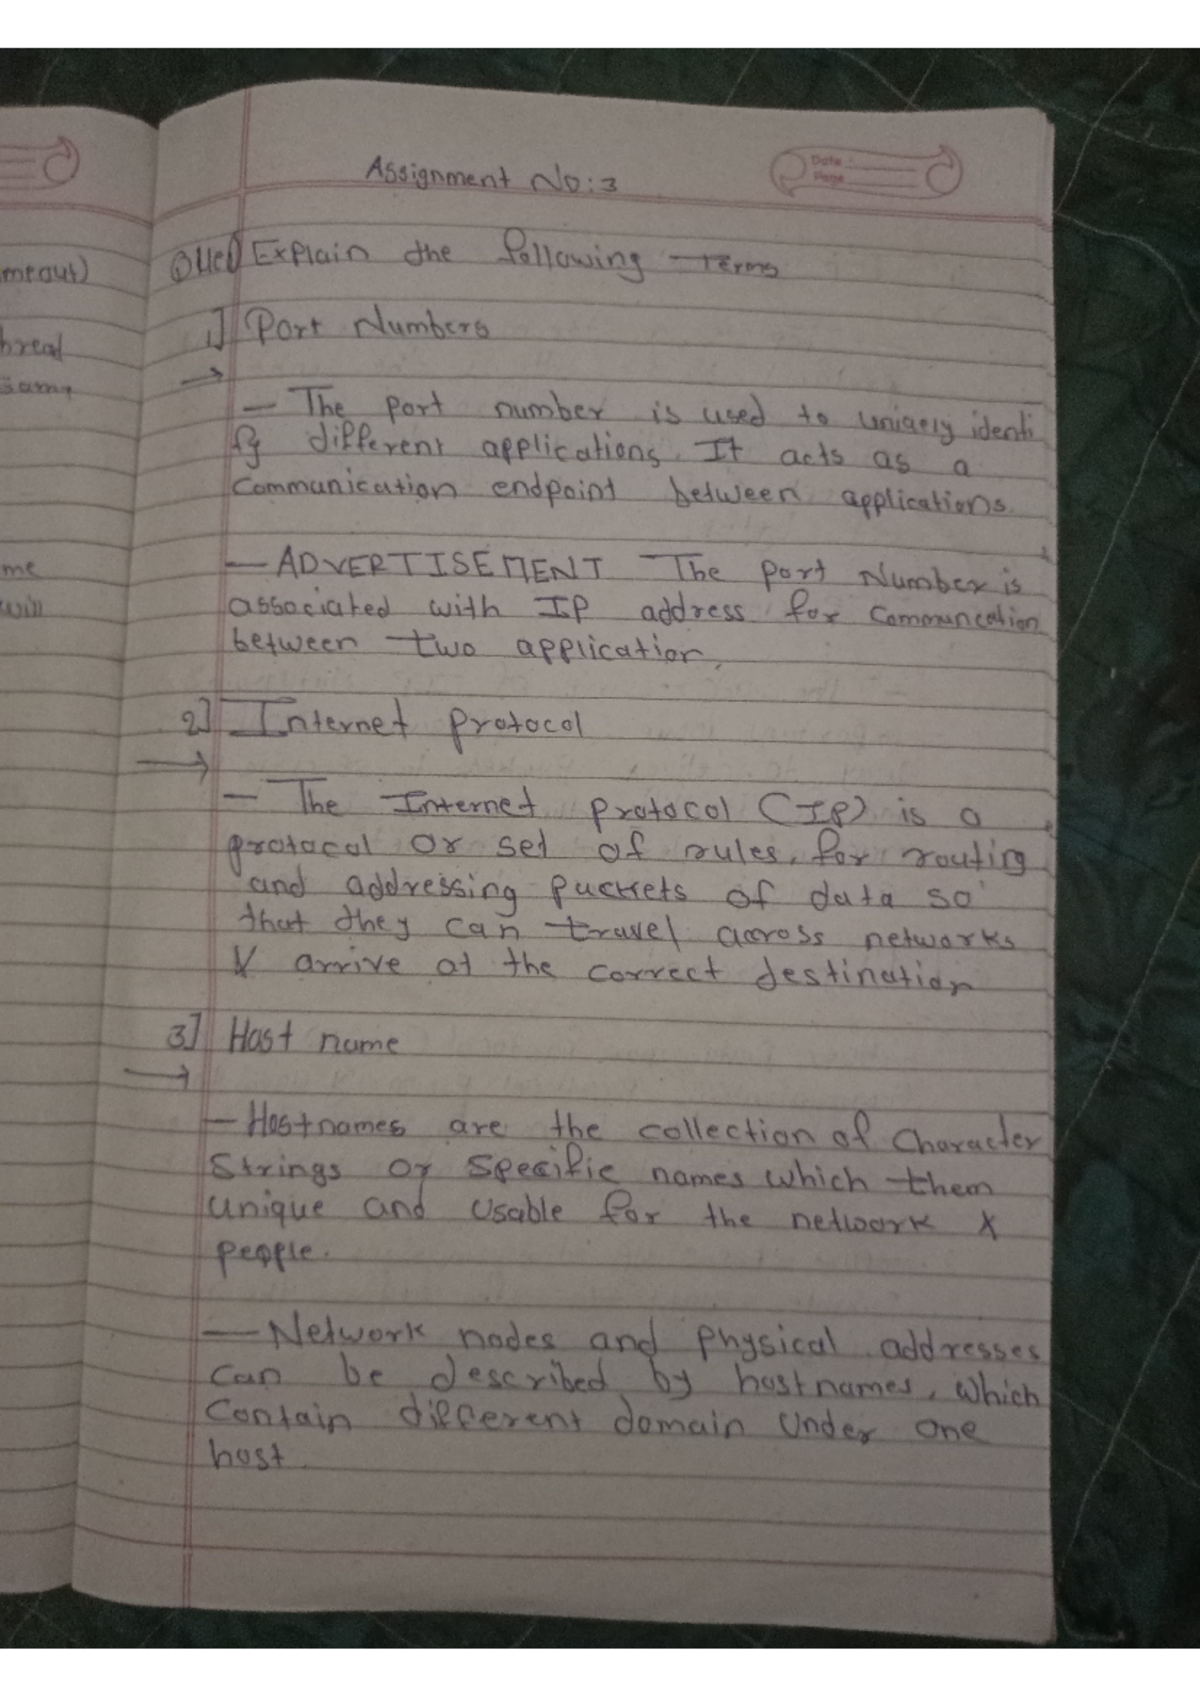 Assignment No:3
Date :
Page
meout)
Que) Explain the following Terms
1] Port Numbers
→
hread
same
- The port number is used to uniqely identi
fy different applications. It acts as a
Communication endpoint between applications.
- ADVERTISEMENT The port Number is
associated with IP address for Communcation
between two application.
me
will
2] Internet protocol
→
- The Internet protocol (IP) is a
protocol or set of rules, for routing
and addressing puckets of data so
that they can travel across networks
& arrive at the correct destination
3] Host name
→
- Hostnames are the collection of Character
Strings or Specific names which them
unique and usable for the network &
people.
- Network nodes and physical addresses
can be described by hostnames, which
Contain different domain under one
host.